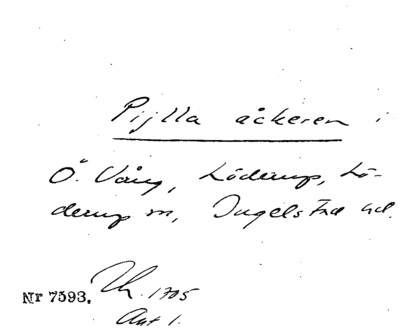 Pijlla åckeren i
Ö. Vång, Löderup, Lö-
derup sn, Ingelstad hd.
Nr 7593. 1705
Akt 1.